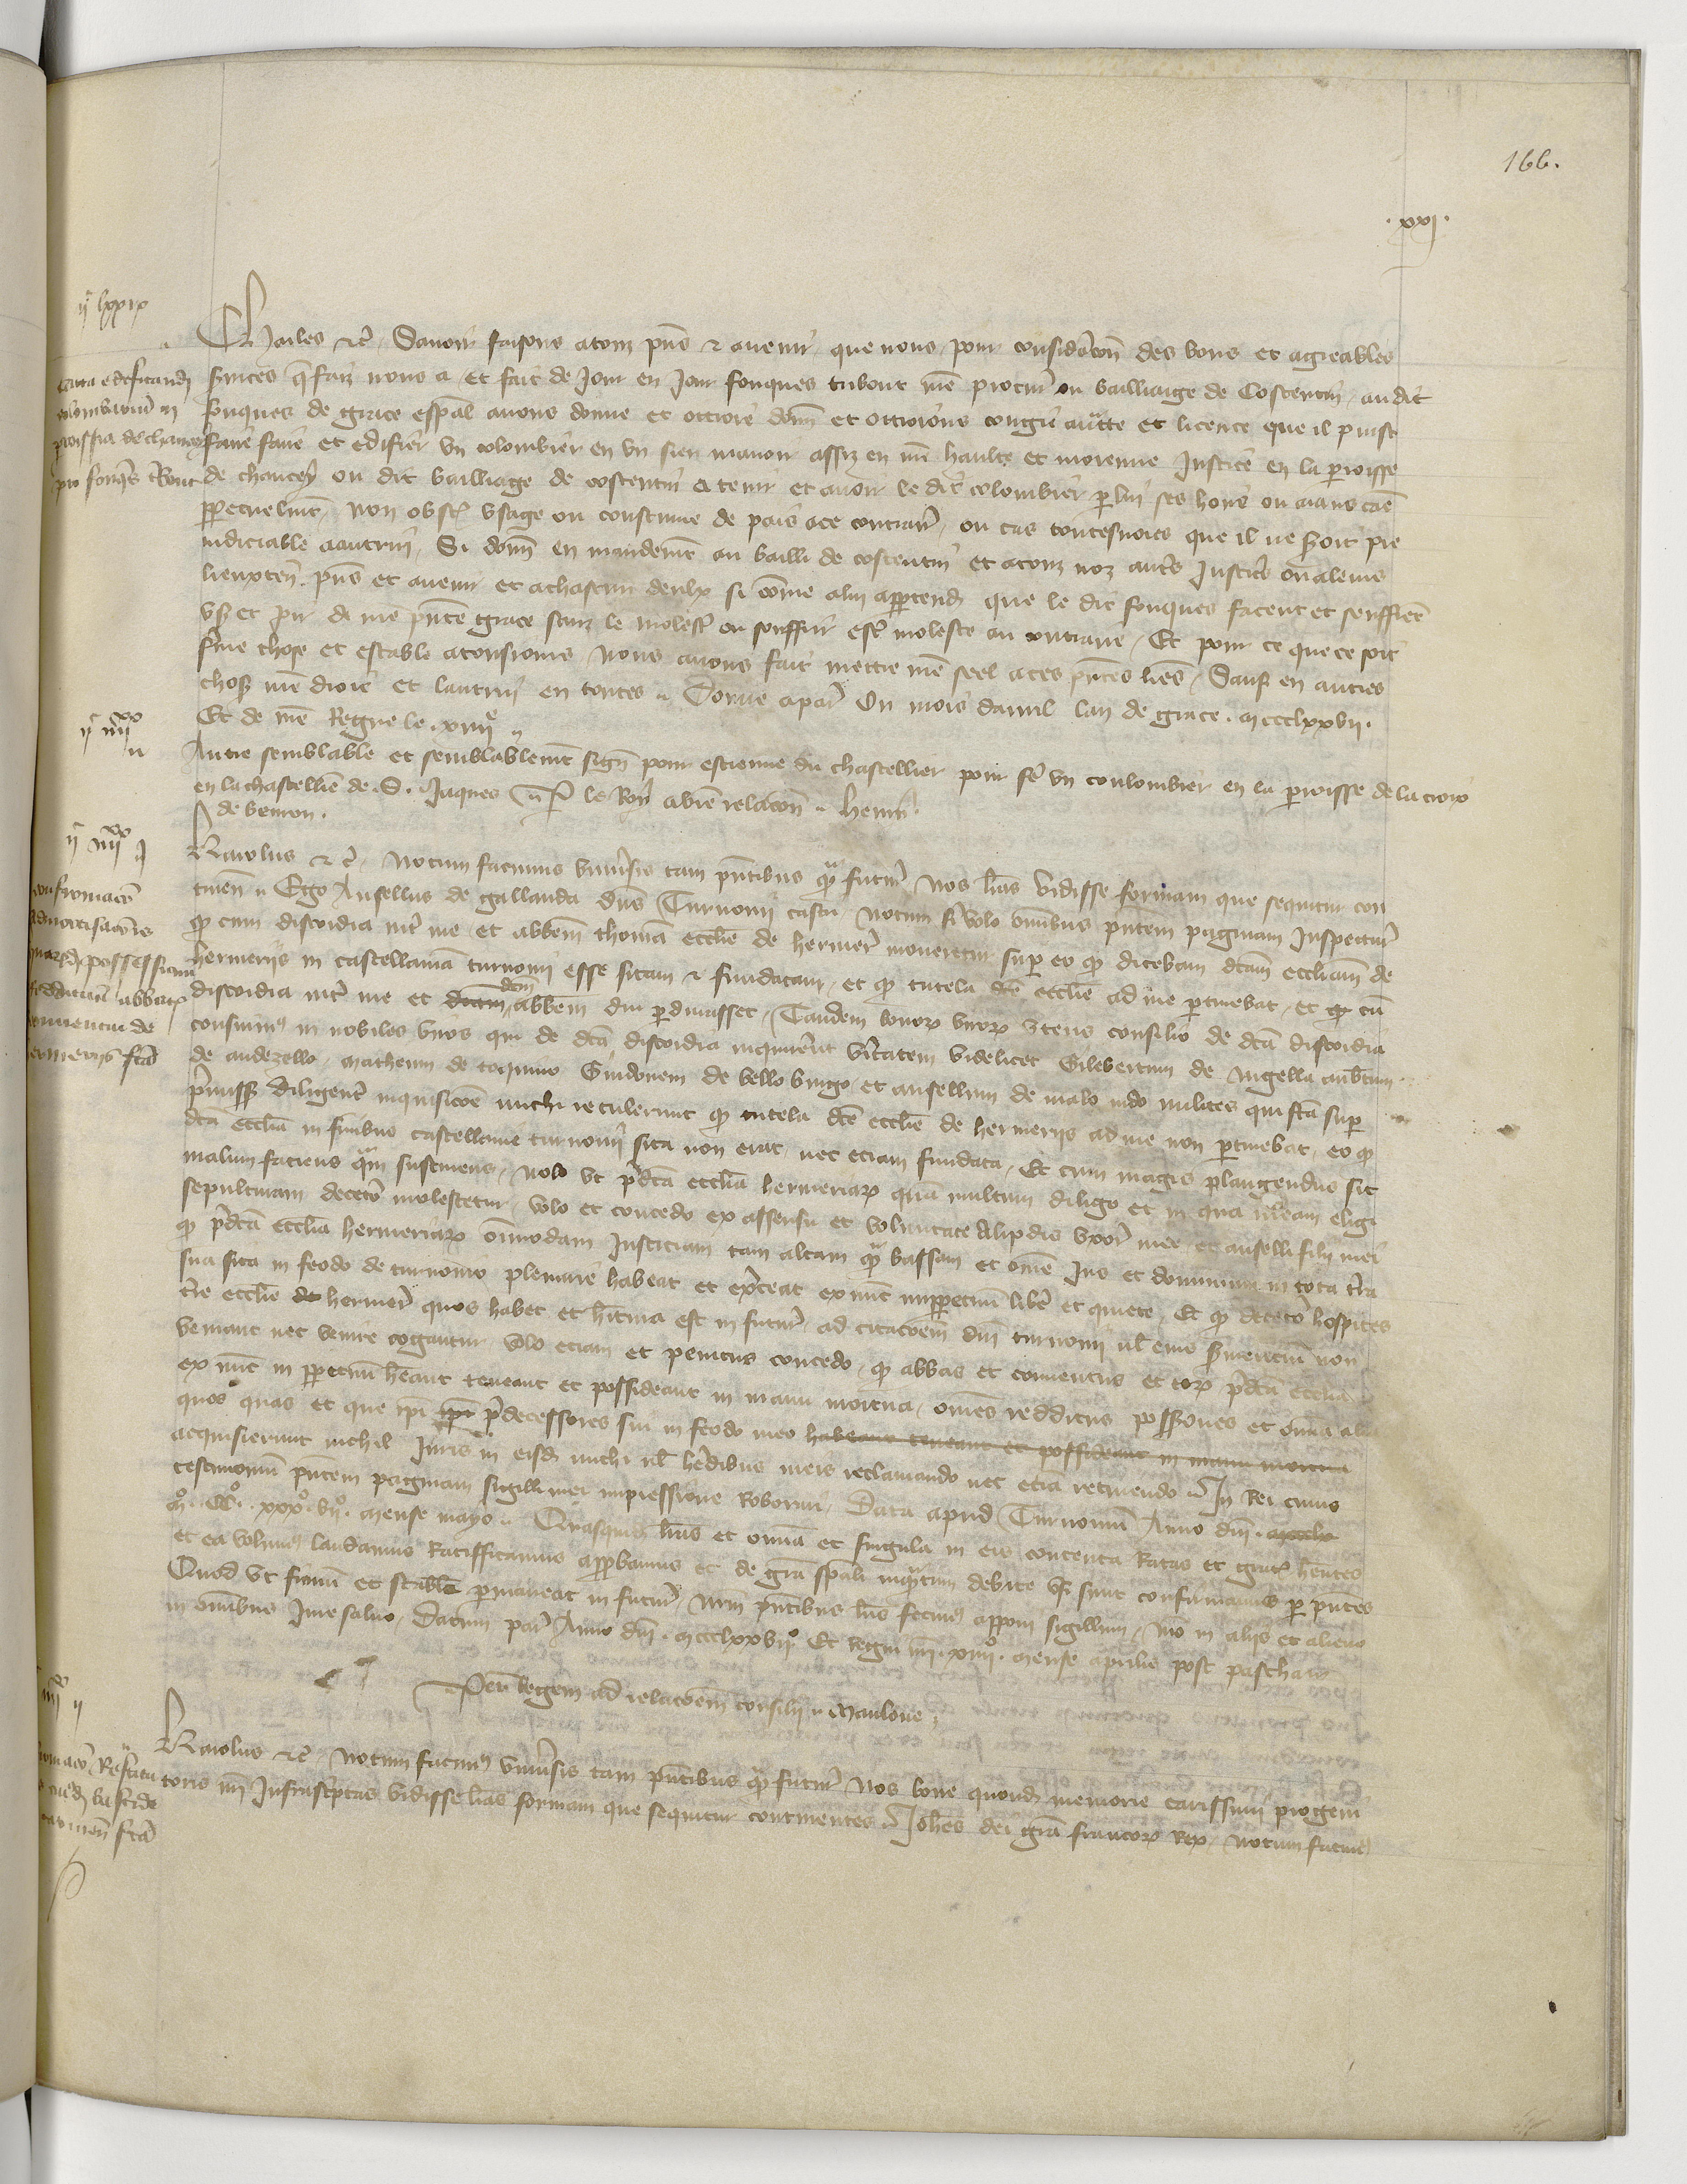 166.
.xxj.
ijc lxxix
Charles etc. Savoir faisons a touz pñs et avenir que nous pour consideracōn des bons et agreables
Gracia edificandi
columbarium in
parrochia de chancey
pro fouques tibout
services q̃ faiz nous a et fait de jour en jour fouques tibout nr̃e procur̃ ou bailliaige de Costentin, audit
fouques de grace esp̃al avons donne et ottroie donñ et ottroions congie auctte et licence que il puist
faire faire et edifier un colombier en un sien manoir assiz en nr̃e haulte et moienne justice en la parroisse
de chancey ou dit bailliage de costentin et tenir et avoir le dit colombier par lui ses hoirs ou aians cãe
perpetuelmẽt, Non obst̃ usage ou coustume de pais a ce contraire, ou cas toutesvoies que il ne seroit pre
iudiciable a autruy, Si donñ en mandemẽt au bailli de costentin et a touz noz autres justic̃s ou a leurs
lieuxteñ. pñs et avenir et a chascun deulx si cõme a lui appartendr̃ que le dit fouques facent et seuffrẽt
user et joir de nr̃e pñte grace sanz le molest̃ ou souffrir estr̃e moleste au contraire, Et pour ce que ce soit
ferme chose et estable a tousiours, Nous avons fait mettre nr̃e seel a ces pñtes lr̃es, Sauf en autres
choses nr̃e droit et lautrui en toutes. Donne a paris Ou mois davril lan de grace. mccclxxvij.
Et de nr̃e Regne le. xiiije
ijc iiijxx
Autre semblable et semblablemẽt sign̄ pour estienne du chastellier pour fẽ un coulombier en la parroisse de la croix
en la chastellie de. S. Jaques Par le Roy a vr̃e relacõn. henri.
de bevron.
ijc iiijxx j
confirmacõ
admortisacõis
quarumd̃ possessionum
reddituũ abbati et
conventui de
hermeriis fc̃a
Karolus etc. Notum facimus uniṽsis tam pñtibus q̃ futuris Nos lr̃as vidisse formam que sequitur con
tineñ. Ego Ansellus de gallanda dñs Turnomii castri, Notum fĩ volo om̃ibus pñtem paginam inspectur̃
q̃ cum discordia int̃ me et abbẽm thomã eccl̃ie de hermeriis moveretur super eo q̃ dicebam dc̃am eccl̃iam de
hermeriis in castellaniã turnomii esse sitam et fundatam, et q̃ tutela dc̃e eccl̃ie ad me p̱tinebat, et cũ
discordia int̃ me et dc̃m abbẽm diu p̱durasset, Tandem bonoꝝ viroꝝ consilio de dc̃a discordia
consuim̃ in nobiles viros qui de dc̃a discordia inquirer̃t veritatem videlicet Gilebertum de Nigella aub̃tum
de andezello, Matheum de toquino Guidonem de bello burgo et ansellum de malo nido milites qui fc̃a super
p̃missis diligenti inquisicõe michi retulerunt q̃ tutela dc̃e eccl̃ie de hermeriis ad me non p̱tinebat, eo q̃
dc̃a eccl̃ia in finibus castellanie turnomii sita non erat, nec eciam fundata, Et cum magis plangendus sit
malum faciens q̃m sustinens, Nolo ut p̃dc̃a eccl̃ia hermeriaꝝ quã multum diligo et in qua meam eligi
sepulturam decet̃o molestetur, volo et concedo ex assensu et voluntate Alipdis uxoris mee et anselli filii mei
q̃ p̃dc̃a eccl̃ia hermeriaꝝ om̃imodam justiciam tam altam q̃ bassam et om̃e jus et dominium in tota tr̃a
sua sita in feodo de turnomio plenarie habeat et ex̃ceat ex nũc imperpetuũ libe et quiete, Et q̃ decet̃o hospites
tr̃e eccl̃ie de hermeriis quos habet et hitura est in futur̃, ad citacõem dñi turnomii ul̃ eius s̃vientiũ non
veniant nec venire cogantur. Volo eciam et penitus concedo, q̃ abbas et conventus et eoꝝ p̃dc̃a eccl̃ia
ex nũc in p̱petuũ hẽant teneant et possideant in manu mortua, om̃es redditus possessiones et om̃ia alia
quos quas et que ip̃i p̃decessores sui in feodo meo habeant teneant et possideant in manu mortua
acquisierunt nichil juris in eisdẽ michi ul̃ her̃dibus meis reclamando nec etiã retinendo. In Rei cuius
testimoniũ pñtem paginam sigilli mei impressione roboravi, Data apud Turnomiũ Anno dñi.
mº. ccº. xxxº. viiº. mense mayo. Quasquid̃ lr̃as et om̃ia et singula in eis contenta Ratas et gratas hẽntes
et ea volum̃ laudamus Ratifficamus approbamus et de gr̃a sp̃ali inq̃ntum debite us̃ sunt confirmamus per pñtes
Quod ut firmũ et stabile permaneat in futur̃, Nr̃m pñtibus lr̃is fecim̃ apponi sigillum, Nr̃o in aliis et alieno
in om̃ibus jure salvo, Datum par̃ Anno dñi. mccclxxviiº. Et Regni nr̃i xiiijº. mense aprilis post pascha
Per Regem ad relacõem consilii. Maulone
iiijxx ij
Karolus etc. Notum facim̃ uniṽsis tam pñtibus q̃ futur̃ Nos bone quond̃ memorie carissimi progeni
toris nr̃i infrascriptas vidisse lr̃as formam que sequitur continentes. Johes dei gr̃a francoꝝ Rex, Notum facim̃